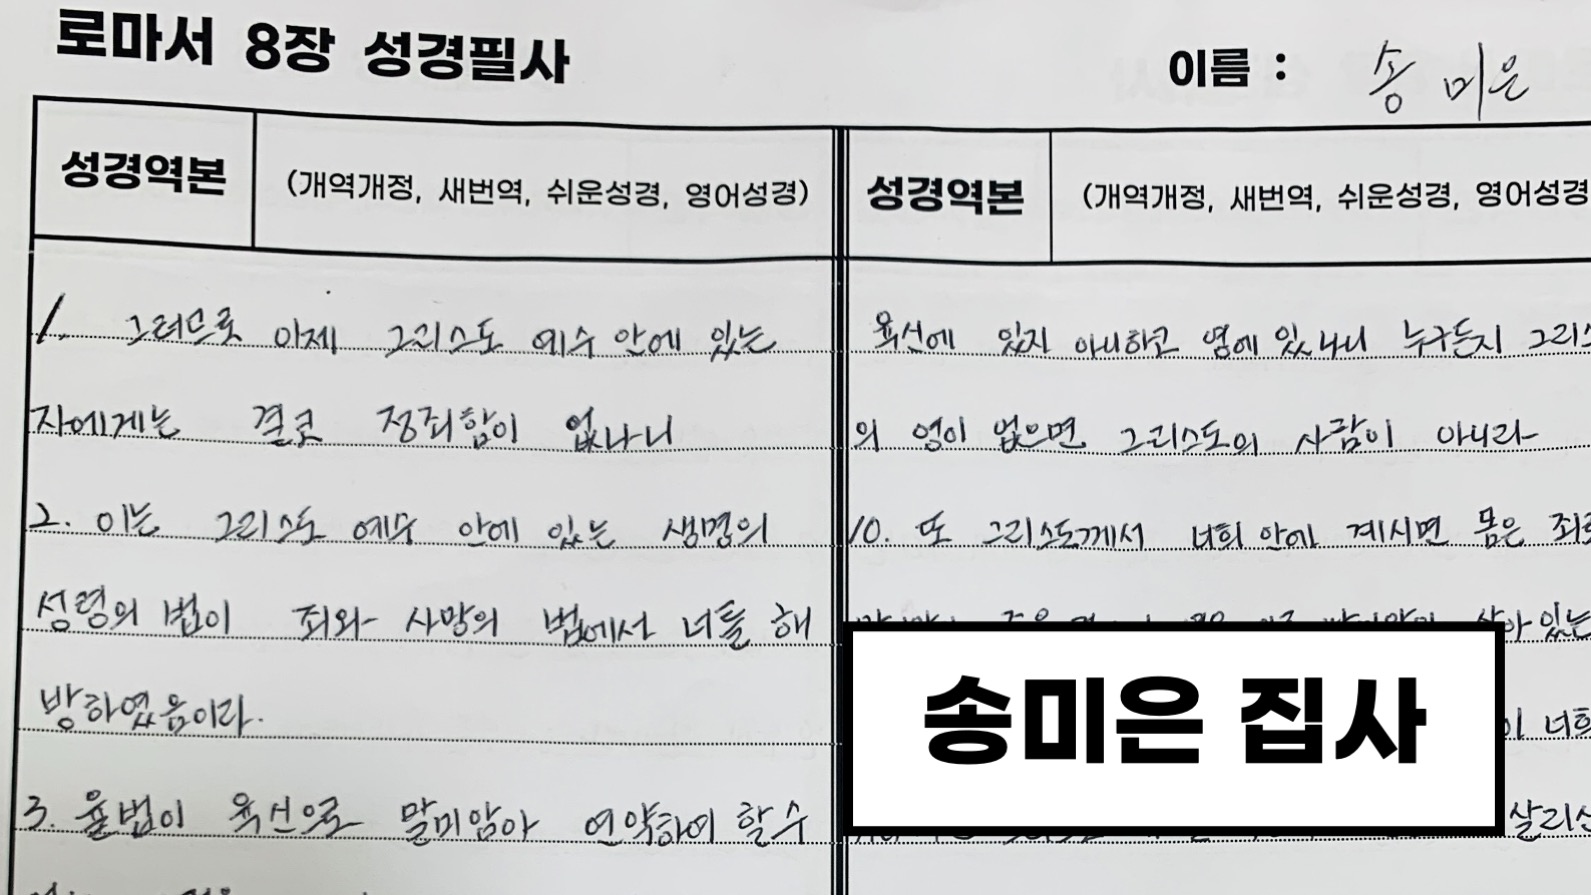 로마서 8장 성경필사
이름 : 송미은
성경역본 (개역개정, 새번역, 쉬운성경, 영어성경)
1. 그러므로 이제 그리스도 예수 안에 있는
자에게는 결코 정죄함이 없나니
2. 이는 그리스도 예수 안에 있는 생명의
성령의 법이 죄와 사망의 법에서 너를 해
방하였음이라.
3. 율법이 육신으로 말미암아 연약하여 할 수
성경역본 (개역개정, 새번역, 쉬운성경, 영어성경
육신에 있지 아니하고 영에 있나니 누구든지 그리스
의 영이 없으면 그리스도의 사람이 아니라
10. 또 그리스도께서 너희 안에 계시면 몸은 죄로
살아 있는
이 너희
살리신
송미은 집사